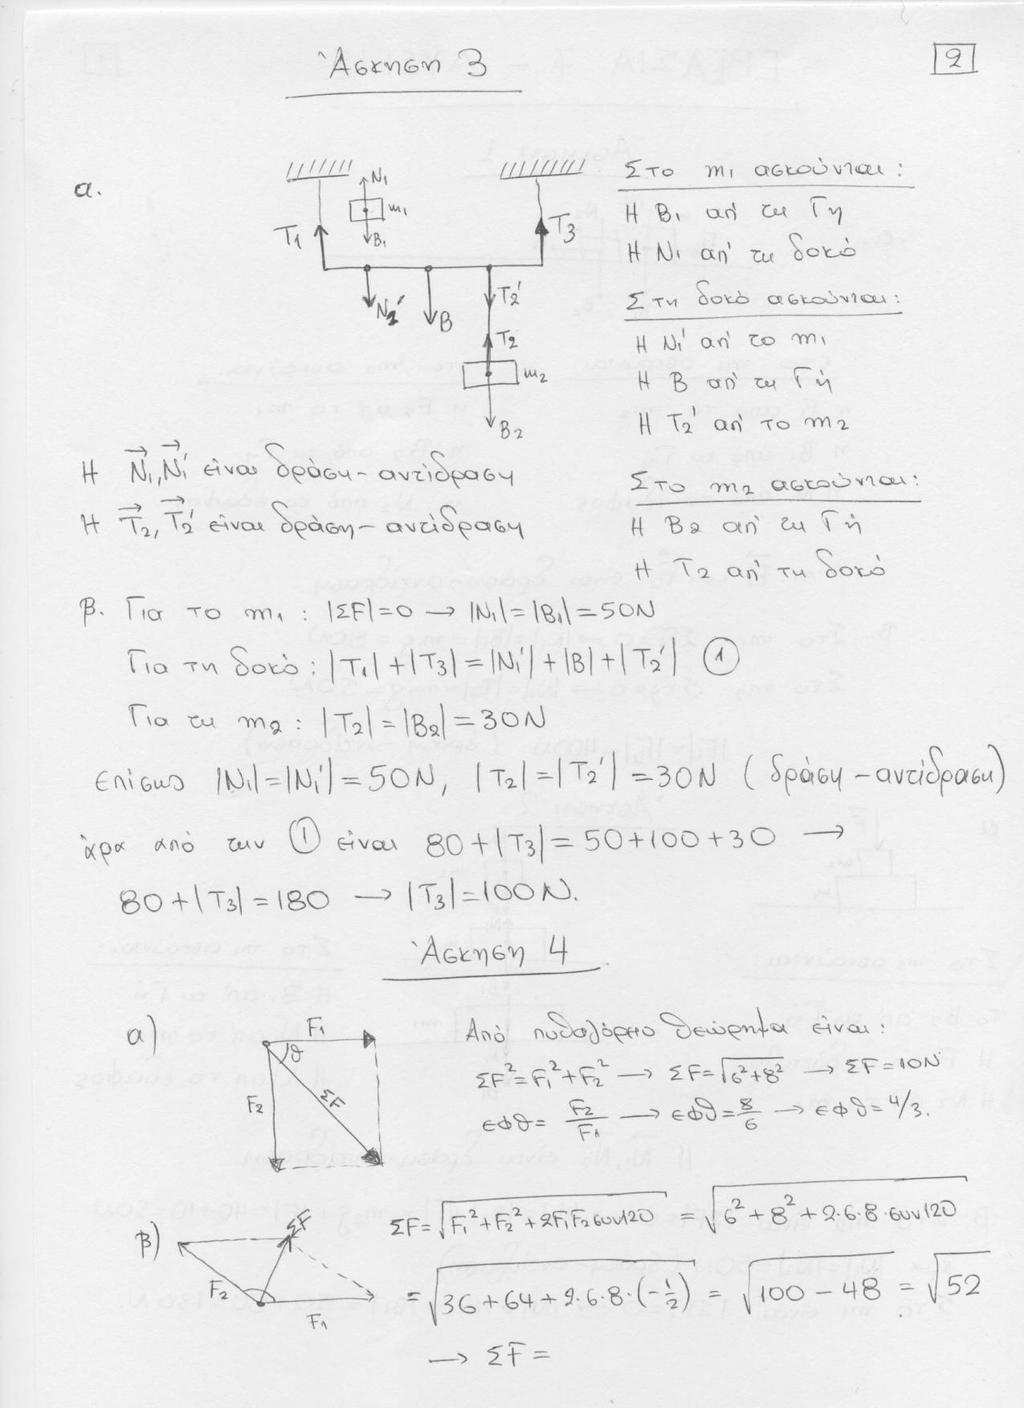 Άσκηση 3
2
α.
N1
m1
B1
T1
T3
N2'
B
T2'
T2
m2
B2
Στο m1 ασκούνται:
Η B1 απ' τη Γη
Η N1 απ' τη δοκό
Στη δοκό ασκούνται:
Η N1' απ' το m1
Η B απ' τη Γή
Η T2' απ' το m2
Στο m2 ασκούνται:
Η B2 απ' τη Γή
Η T2 απ' τη δοκό
Η N⃗1, N⃗1' είναι δράση-αντίδραση
Η T⃗2, T⃗2' είναι δράση-αντίδραση
β. Για το m1 : |ΣF|=0 → |N1|=|B1|=50N
Για τη δοκό : |T1|+|T3|=|N1'|+|B|+|T2'| ①
Για τη m2 : |T2|=|B2|=30N
επίσης |N1|=|N1'|=50N, |T2|=|T2'|=30N (δράση-αντίδραση)
άρα από την ① είναι 80+|T3|=50+100+30 →
80+|T3|=180 → |T3|=100N.
Άσκηση 4
α)
F1
θ
F2
ΣF
Από πυθαγόρειο θεώρημα είναι:
ΣF²=F1²+F2² → ΣF=√(6²+8²) → ΣF=10N
εφθ= F2/F1 → εφθ=8/6 → εφθ=4/3.
β)
ΣF
F2
F1
ΣF=√(F1²+F2²+2F1F2συν120) = √(6²+8²+2·6·8·συν120)
=√(36+64+2·6·8·(-1/2)) = √(100-48) = √52
→ ΣF =